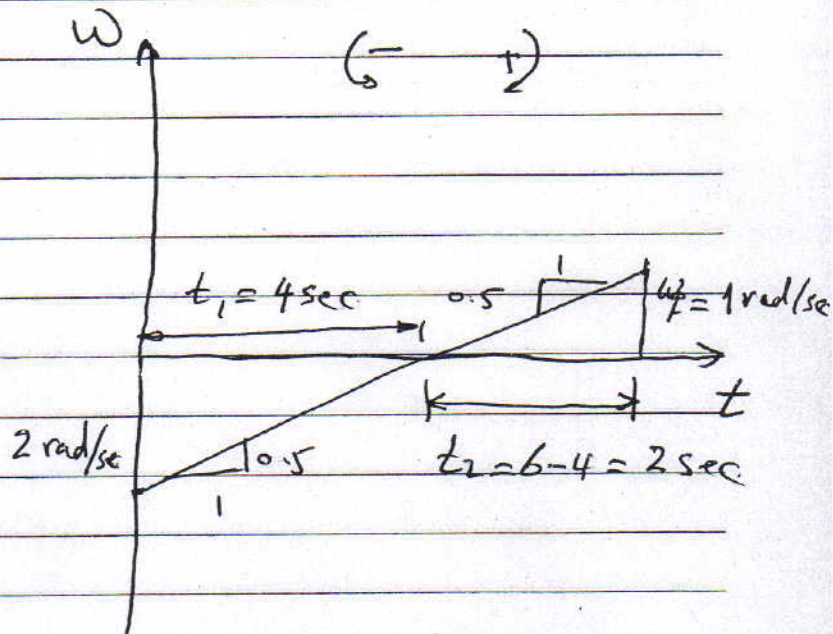 ω
(- +)
t₁ = 4 sec
0.5
1
= 1 rad/se
t
2 rad/se
0.5
1
t₂ = 6-4 = 2 sec